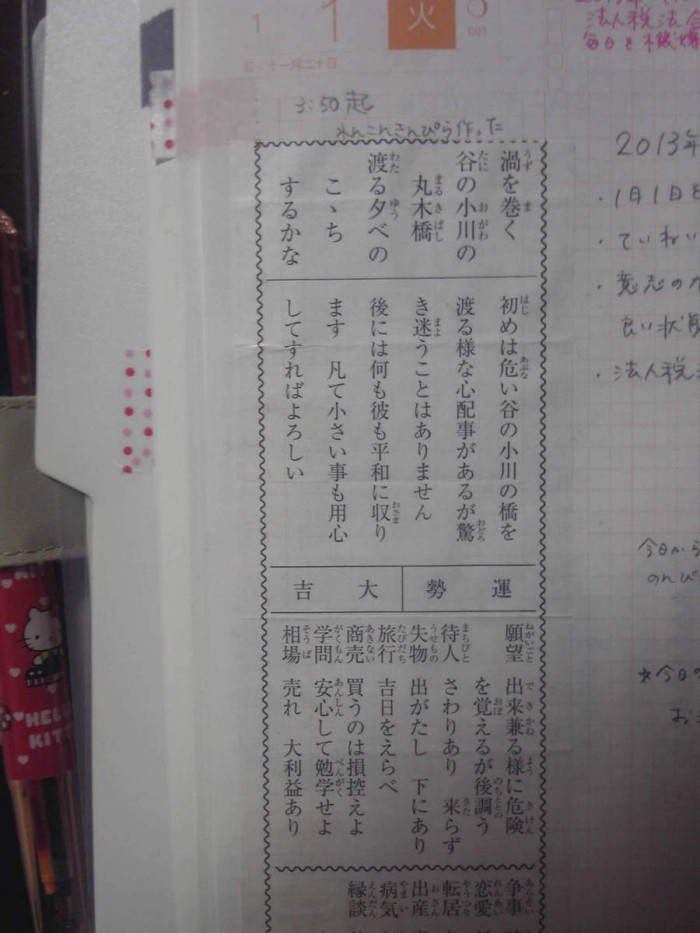 1
1
火
001
法人税法
毎日を
3:50起
れんこんきんぴら作った
渦を巻く
谷の小川の
丸木橋
渡る夕べの
こゝち
するかな
初めは危い谷の小川の橋を
渡る様な心配事があるが驚
き迷うことはありません
後には何も彼も平和に収り
ます 凡て小さい事も用心
してすればよろしい
運勢 大吉
願望 出来兼る様に危険
を覚えるが後調う
待人 さわりあり 来らず
失物 出がたし 下にあり
旅行 吉日をえらべ
商売 買うのは損控えよ
学問 安心して勉学せよ
相場 売れ 大利益あり
争事
恋愛
転居
出産
病気
縁談
2013年
・1月1日を
・ていねい
・意志の
良い状態
・法人税
今日から
のんび
★今日の
HELLO
KITTY